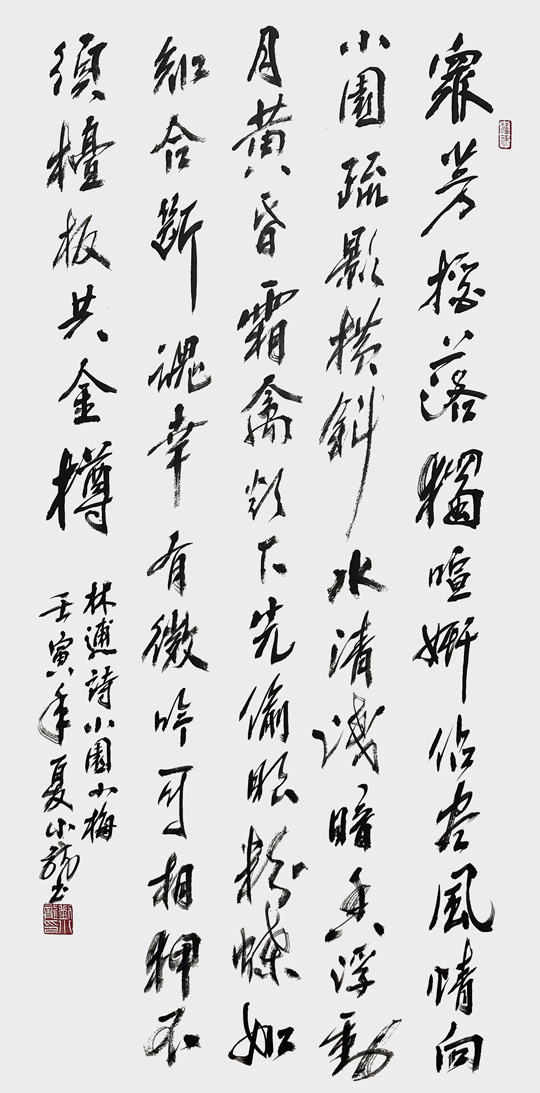 眾芳搖落獨喧妍佔盡風情向
小園疏影橫斜水清淺暗香浮動
月黃昏霜禽欲下先偷眼粉蝶如
知合斷魂幸有微吟可相狎不
須檀板共金樽
林逋詩小園小梅
壬寅年夏小龍書